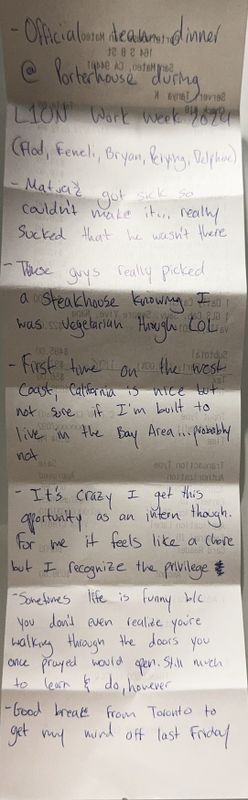 - Official team dinner
@ Porterhouse during
L1ON Work Week 2024
(Flod, Feneli, Bryan, Peiyong, Delphae)
- Mateusz got sick so
couldn't make it... really
sucked that he wasn't there
- These guys really picked
a steakhouse knowing I
was vegetarian though LOL
- First time on the west
Coast, California is nice but
not sure if I'm built to
live in the Bay Area... probably
not
- It's crazy I get this
opportunity as an intern though.
For me it feels like a chore
but I recognize the privilege
- Sometimes life is funny b/c
you don't even realize you're
walking through the doors you
once prayed would open. Still much
to learn & do, however
- Good break from Toronto to
get my mind off last Friday